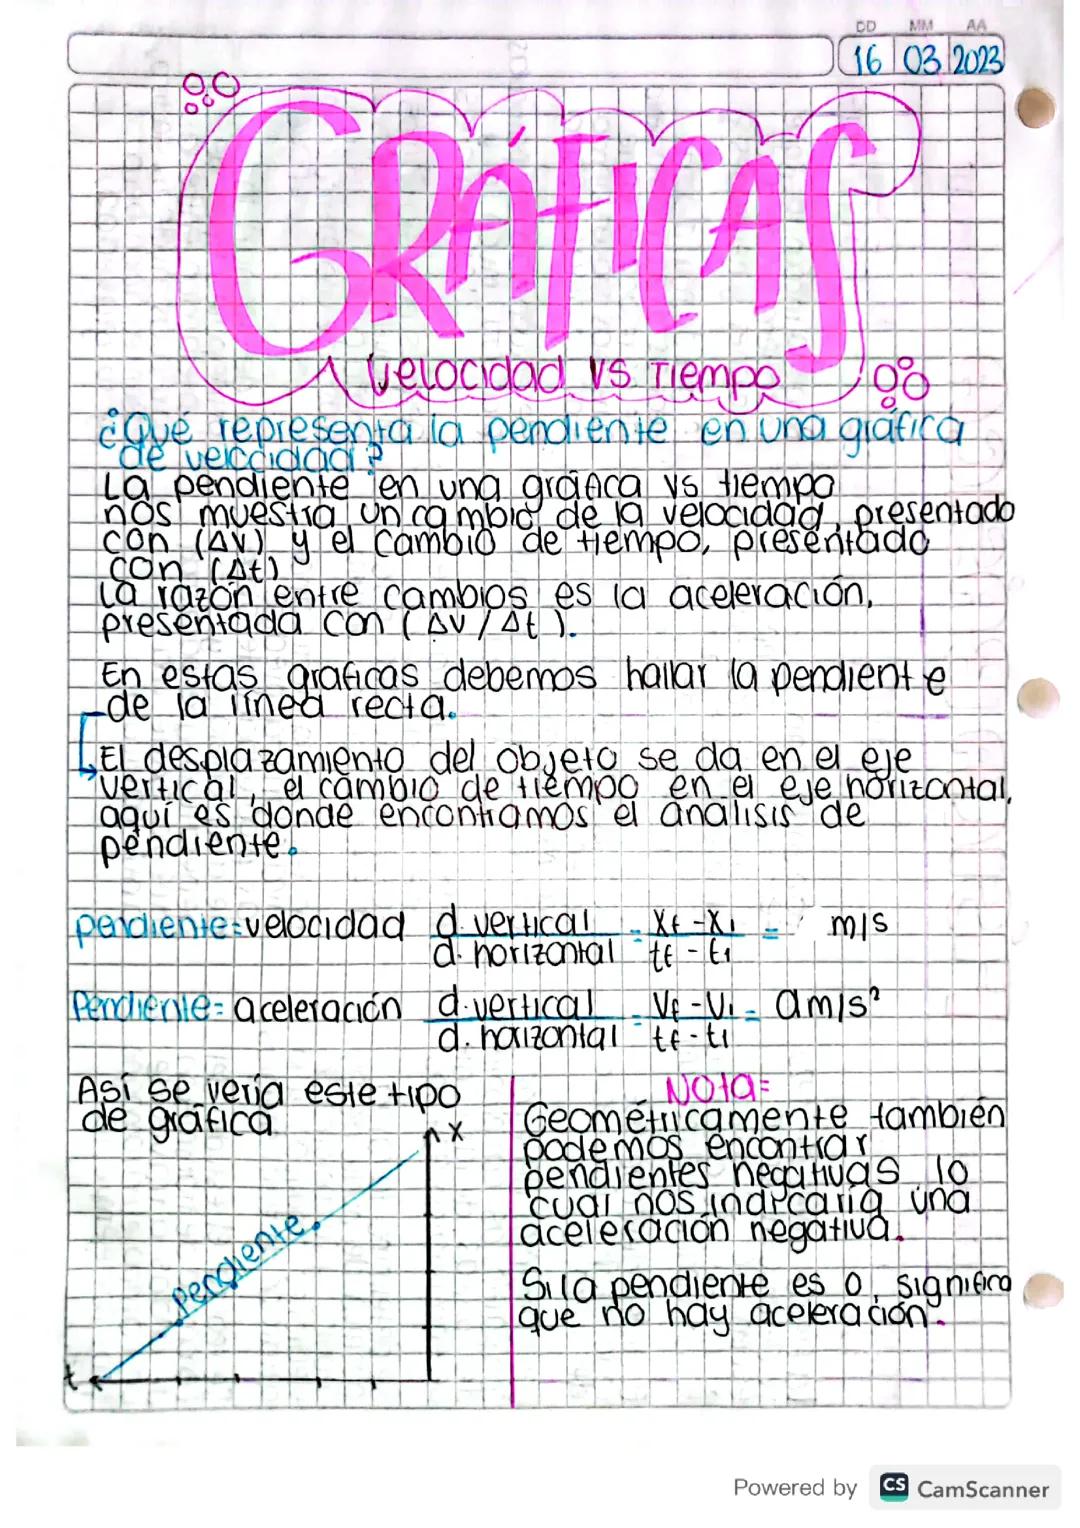 DD MM AA
16 03 2023
GRÁFICAS
Velocidad vs Tiempo
¿Qué representa la pendiente en una gráfica
de velocidad?
La pendiente en una gráfica vs tiempo
nos muestra un cambio de la velocidad, presentado
con (ΔV) y el cambio de tiempo, presentado
con (Δt)
La razón entre cambios es la aceleración,
presentada con (ΔV/Δt).
En estas graficas debemos hallar la pendiente
de la línea recta.
El desplazamiento del objeto se da en el eje
vertical, el cambio de tiempo en el eje horizontal,
aquí es donde encontramos el análisis de
pendiente.
pendiente=velocidad d.vertical = Xf-Xi = m/s
d.horizontal tf-ti
Pendiente=aceleración d.vertical = Vf-Vi = am/s²
d.horizontal tf-ti
Así se vería este tipo
de gráfica
X
pendiente.
t
Nota=
Geométricamente también
podemos encontrar
pendientes negativas lo
cual nos indicaría una
aceleración negativa.
Si la pendiente es 0, significa
que no hay aceleración.
Powered by CS CamScanner